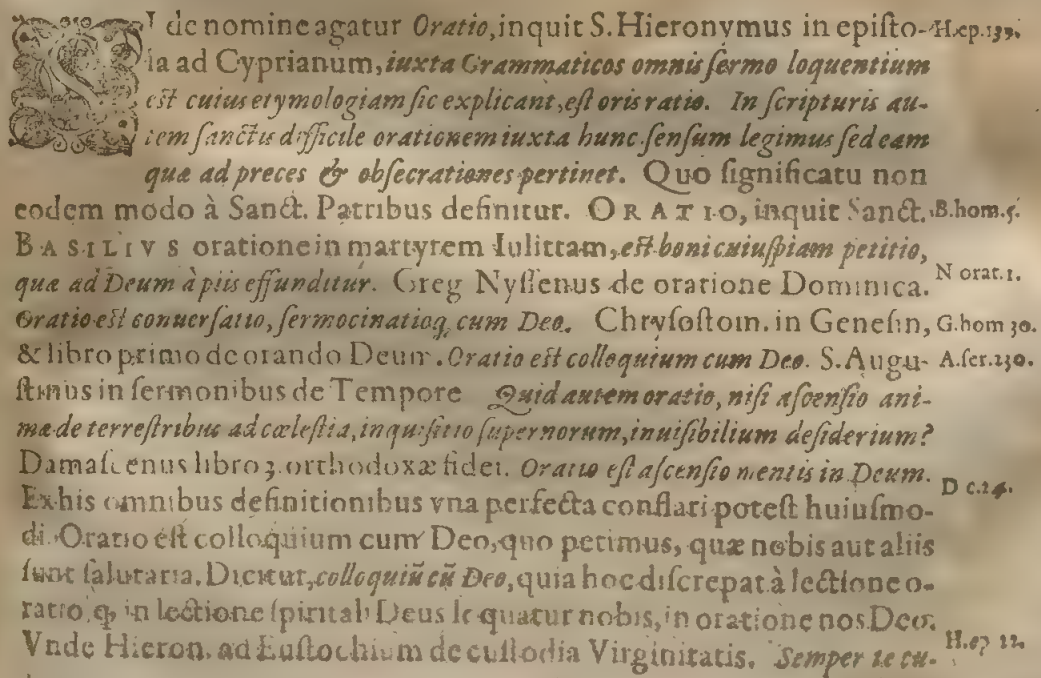 SI de nomine agatur Oratio, inquit S. Hieronymus in episto- H.ep.139.
la ad Cyprianum, iuxta Grammaticos omnis sermo loquentium
est cuius etymologiam sic explicant, est oris ratio. In scripturis au-
tem sanctis difficile orationem iuxta hunc sensum legimus sed eam
quæ ad preces & obsecrationes pertinet. Quo significatu non
eodem modo à Sanct. Patribus definitur. ORATIO, inquit Sanct. B.hom.5.
BASILIVS oratione in martyrem Iulittam, est boni cuiuspiam petitio,
quæ ad Deum à piis effunditur. Greg Nyssenus de oratione Dominica. N orat.1.
Oratio est conuersatio, sermocinatioq; cum Deo. Chrysostom. in Genesin, G.hom 30.
& libro primo de orando Deum. Oratio est colloquium cum Deo. S. Augu- A.ser.230.
stinus in sermonibus de Tempore Quid autem oratio, nisi ascensio ani-
mæ de terrestribus ad cælestia, inquisitio supernorum, inuisibilium desiderium?
Damascenus libro 3. orthodoxæ fidei. Oratio est ascensio mentis in Deum. D c.24.
Ex his omnibus definitionibus vna perfecta conflari potest huiusmo-
di. Oratio est colloquium cum Deo, quo petimus, quæ nobis aut aliis
sunt salutaria. Dicitur, colloquiũ cũ Deo, quia hoc discrepat à lectione o-
ratio, ꝙ in lectione spiritali Deus loquatur nobis, in oratione nos Deo.
Vnde Hieron. ad Eustochium de custodia Virginitatis. Semper te cu- H.ep 22.